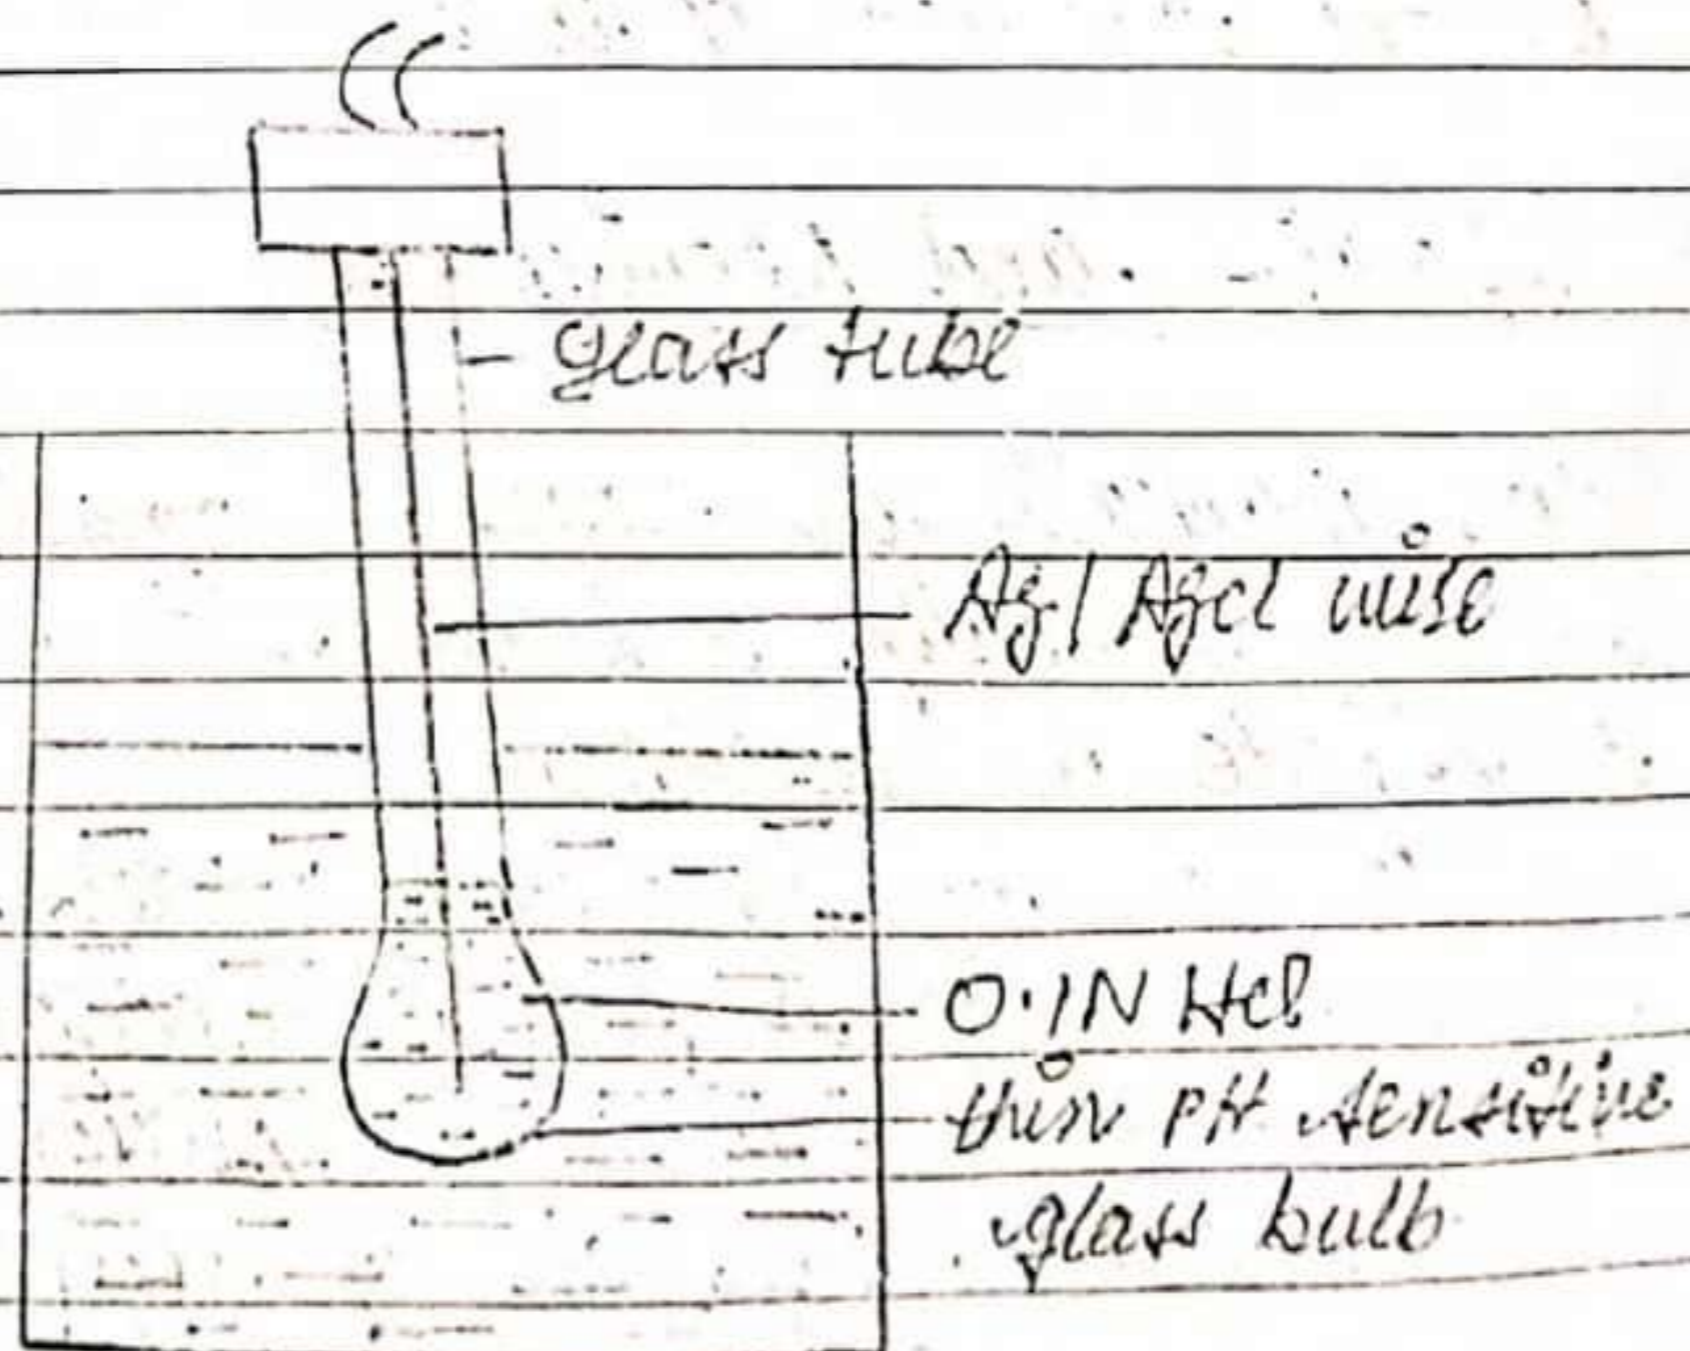 glass tube
Ag/AgCl wire
0.1N HCl
thin pH sensitive
glass bulb